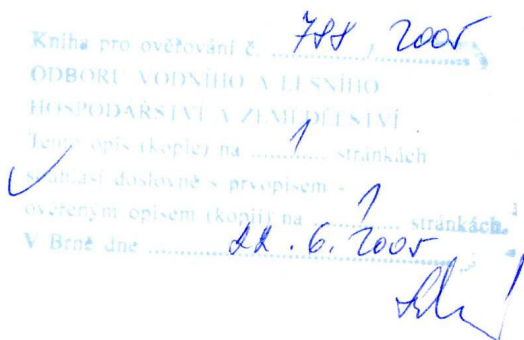 Kniha pro ověřování č. 788 / 2005
ODBORU VODNÍHO A LESNÍHO
HOSPODÁŘSTVÍ A ZEMĚDĚLSTVÍ
Tento opis (kopie) na ...1... stránkách
souhlasí doslovně s prvopisem -
ověřeným opisem (kopií) na ...1... stránkách.
V Brně dne 22. 6. 2005